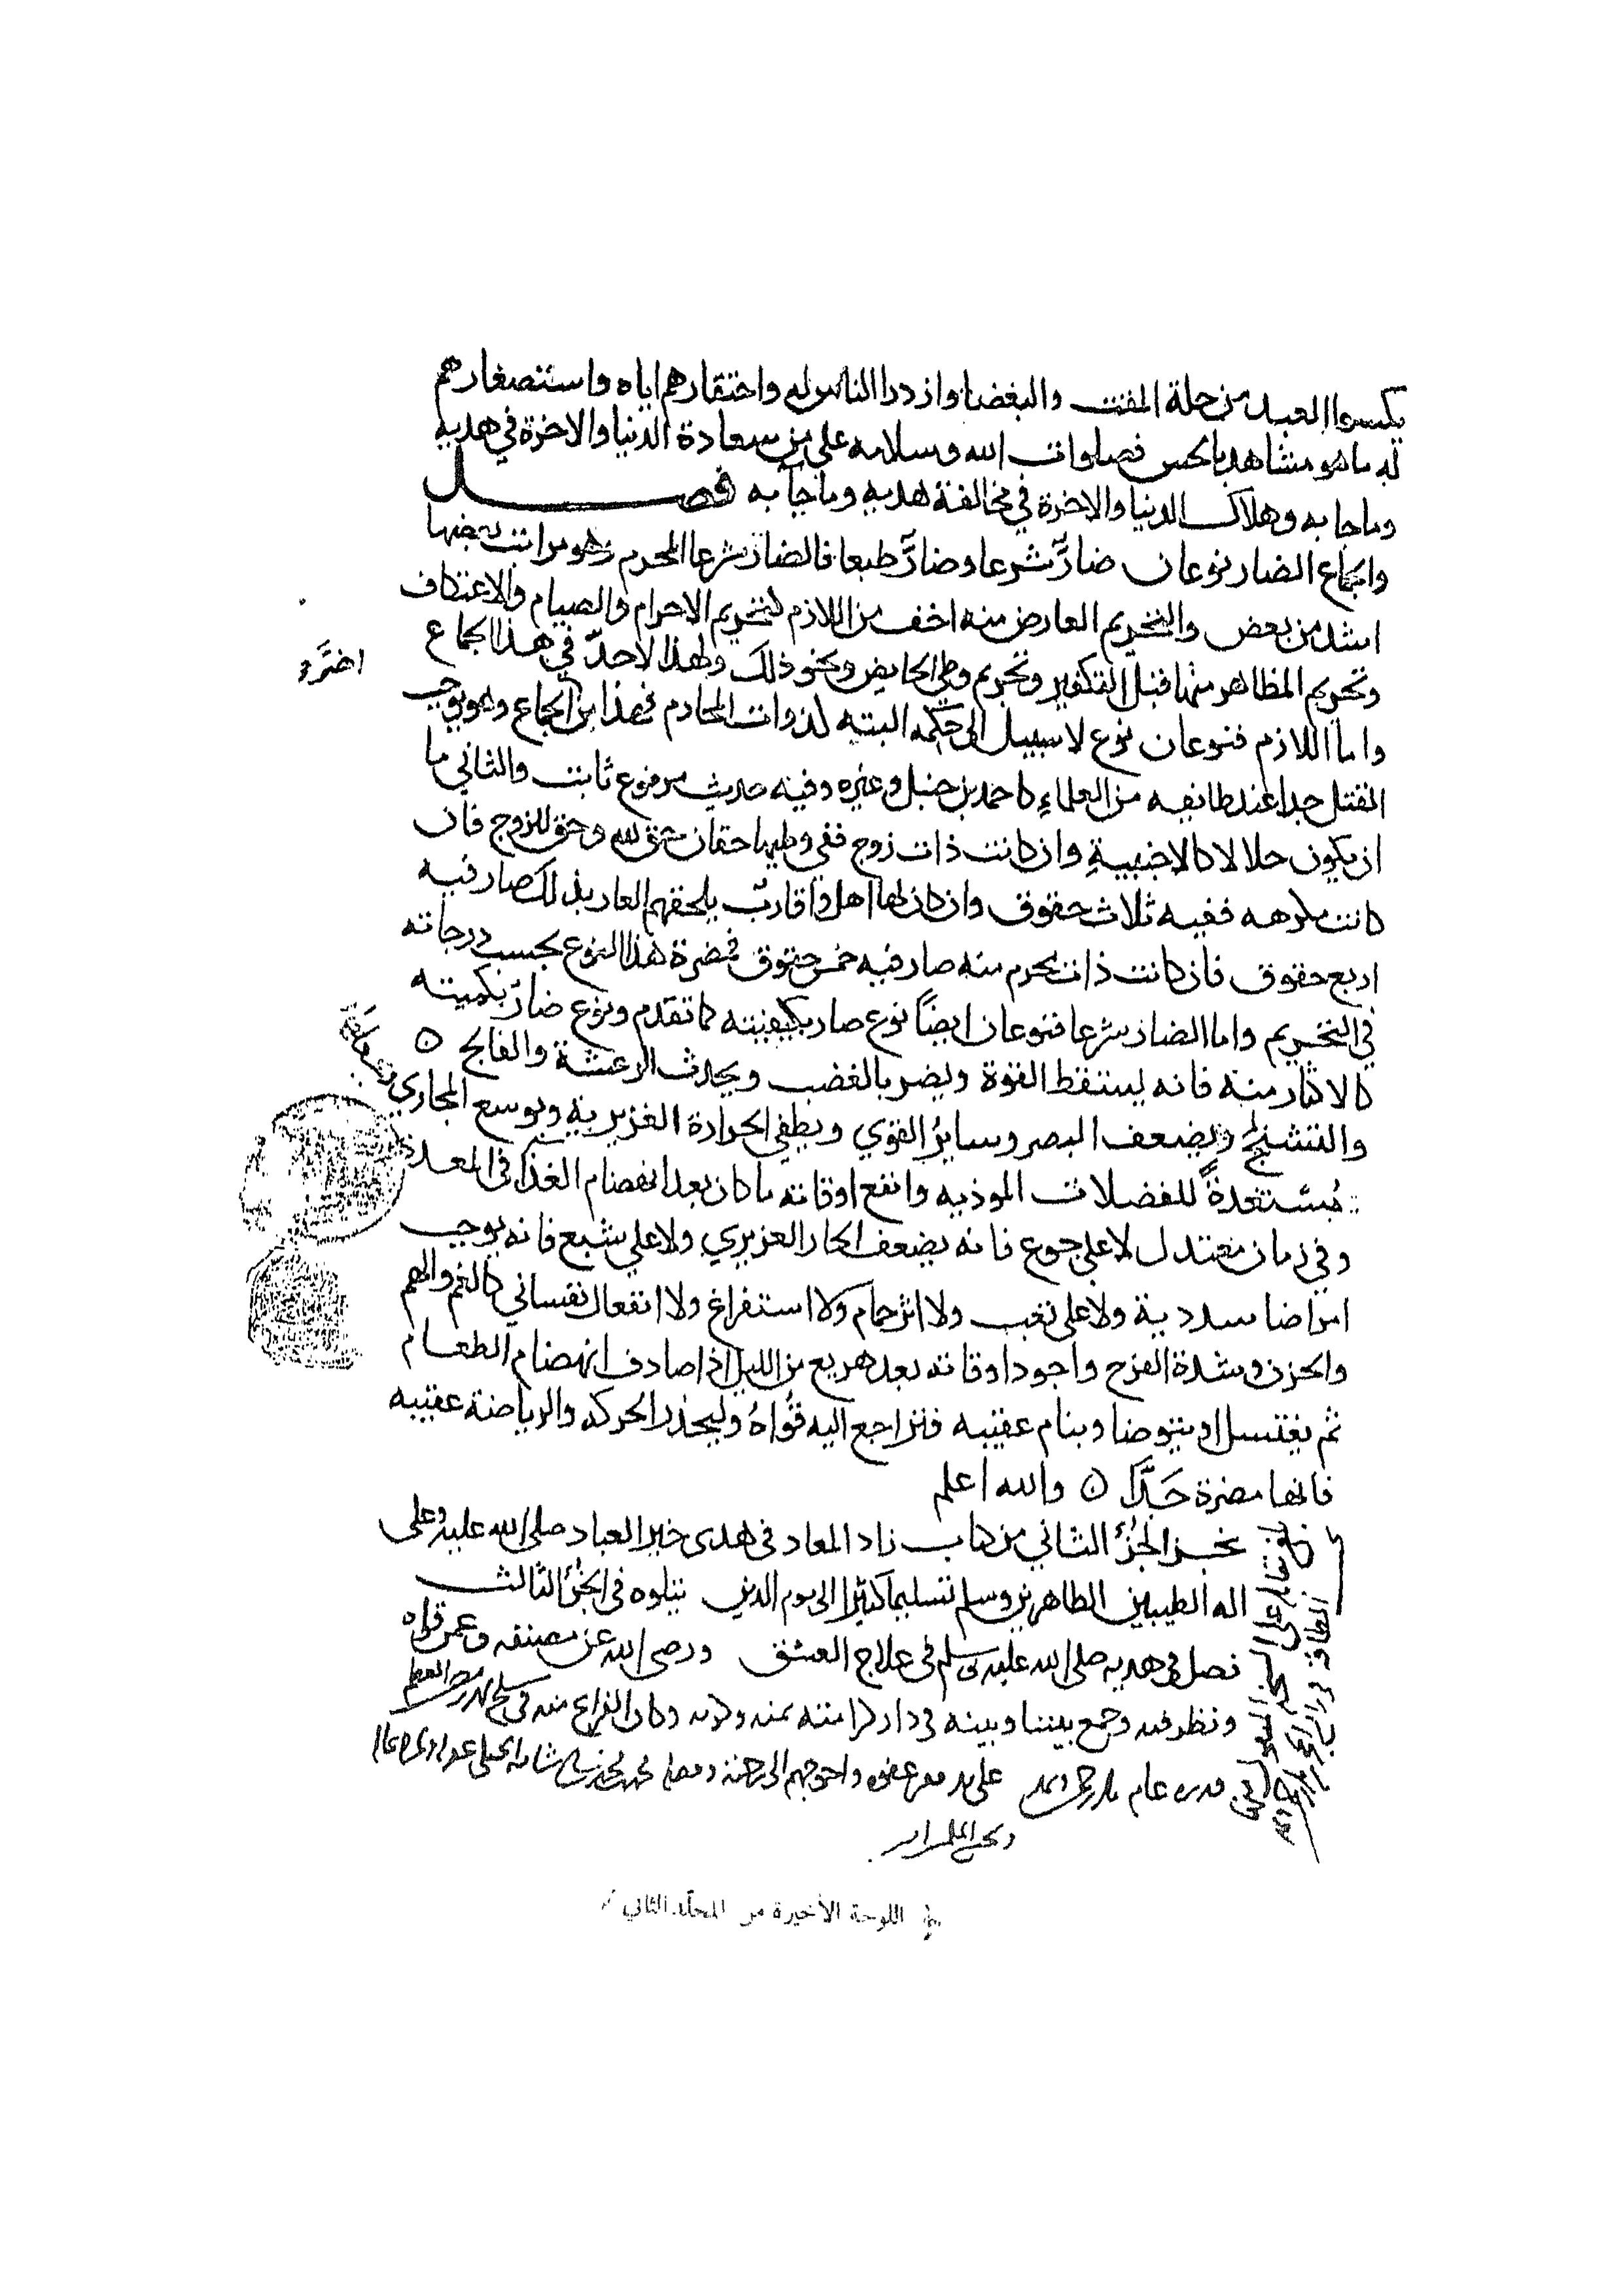 يكسوا العبد من حلة المقت والبغضا وازدرا الناس له واحتقارهم اياه واستصغارهم
له ما هو مشاهد بالحس فصلوات الله وسلامه على من سعادة الدنيا والاخرة في هديه
وما جا به وهلاك الدنيا والاخرة في مخالفة هديه وما جآ به فصل
والجماع الضار نوعان ضارٌّ شرعا وضارٌّ طبعا فالضار شرعا المحرم وهو مراتب بعضها
اشد من بعض والتحريم العارض منه اخف من اللازم لتحريم الاحرام والصيام والاعتكاف
وتحريم المظاهر منها قبل التكفير وتحريم وطي الحايض ونحو ذلك ولهذا لاحدّ في هذا الجماع
واما اللازم فنوعان نوع لا سبيل الى حكمه البته لذوات المحارم فهذا من الجماع وهو يوجب
القتل حدا عند طايفه من العلماء كاحمد بن حنبل وغيره وفيه حديث مرفوع ثابت والثاني ما
ان يكون حلالا كالاجنبيةِ وان كانت ذات زوج ففي وطيها حقان حق لله وحق للزوج فان
كانت مكرهه ففيه ثلاث حقوق وان كان لها اهل واقارب يلحقهم العار بذلك صار فيه
اربع حقوق فان كانت ذات محرم منه صار فيه خمس حقوق فمضرة هذا النوع بحسب درجاته
في التحريم واما الضار شرعا فنوعان ايضًا نوع صار بكيفيته كما تقدم ونوع ضار بكميته
كالاكثار منه فانه يسقط القوة ويضر بالغضب ويحدث الرعشة والفالج ٥
والتشنج ويضعف البصر وساير القوي ويطفي الحرارة الغزيرية ويوسع المجاري
مُستعدةً للفضلات الموذيه وانفع اوقاته ما كان بعد انهضام الغذا في المعدة
وفي زمان معتدل لا على جوع فانه يضعف الحار الغزيري ولا على شبع فانه يوجب
امراضا سددية ولا على تعب ولا اثر حمام ولا استفراغ ولا انفعال نفساني كالغم والهم
والحزن وشدة الفرح واجود اوقاته بعد هزيع من الليل اذا صادف انهضام الطعام
ثم يغتسل او يتوضا وينام عقيبه فتراجع اليه قُواهُ وليحذر الحركه والرياضة عقيبه
فانها مضرة جَدًّا ٥ والله اعلم
نجز الجُزُء الثاني من كتاب زاد المعاد في هدى خير العباد صلى الله عليه وعلى
اله الطيبين الطاهرين وسلم تسليما كثيرا الى يوم الدين يتلوه في الجُزُء الثالث
فصل في هديه صلى الله عليه وسلم في علاج العشق ورضى الله عن مصنفه وعمن قراه
ونظر فيه وجمع بيننا وبينه في دار كرامته بمنه وكرمه وكان الفراغ منه في سلخ شهر
على يد
اللوحة الأخيرة من المجلّد الثاني